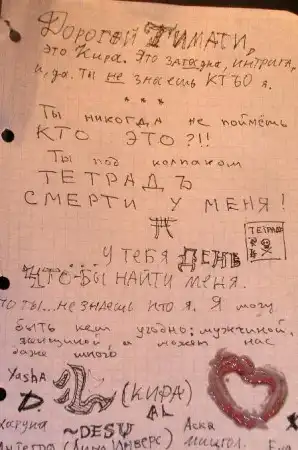 Дорогой Тимати,
это Кира. Это загадка, интрига,
и да. Ты не знаешь КТЪО я.
* * *
Ты никогда не поймёшь
КТО ЭТО?!!
Ты под колпаком
ТЕТРАДЪ
СМЕРТИ У МЕНЯ!
ТЕТРАДЬ
У ТЕБЯ ДЕНЬ
ЧТО-БЫ НАЙТИ МЕНЯ.
то ты... не знаешь кто я. Я могу
быть кем угодно: мужчиной,
женщиной, а может нас
даже много.
YashA
(КИРА)
D.
AL
Каруна
~DESU
Аска
(Лина Инверс)